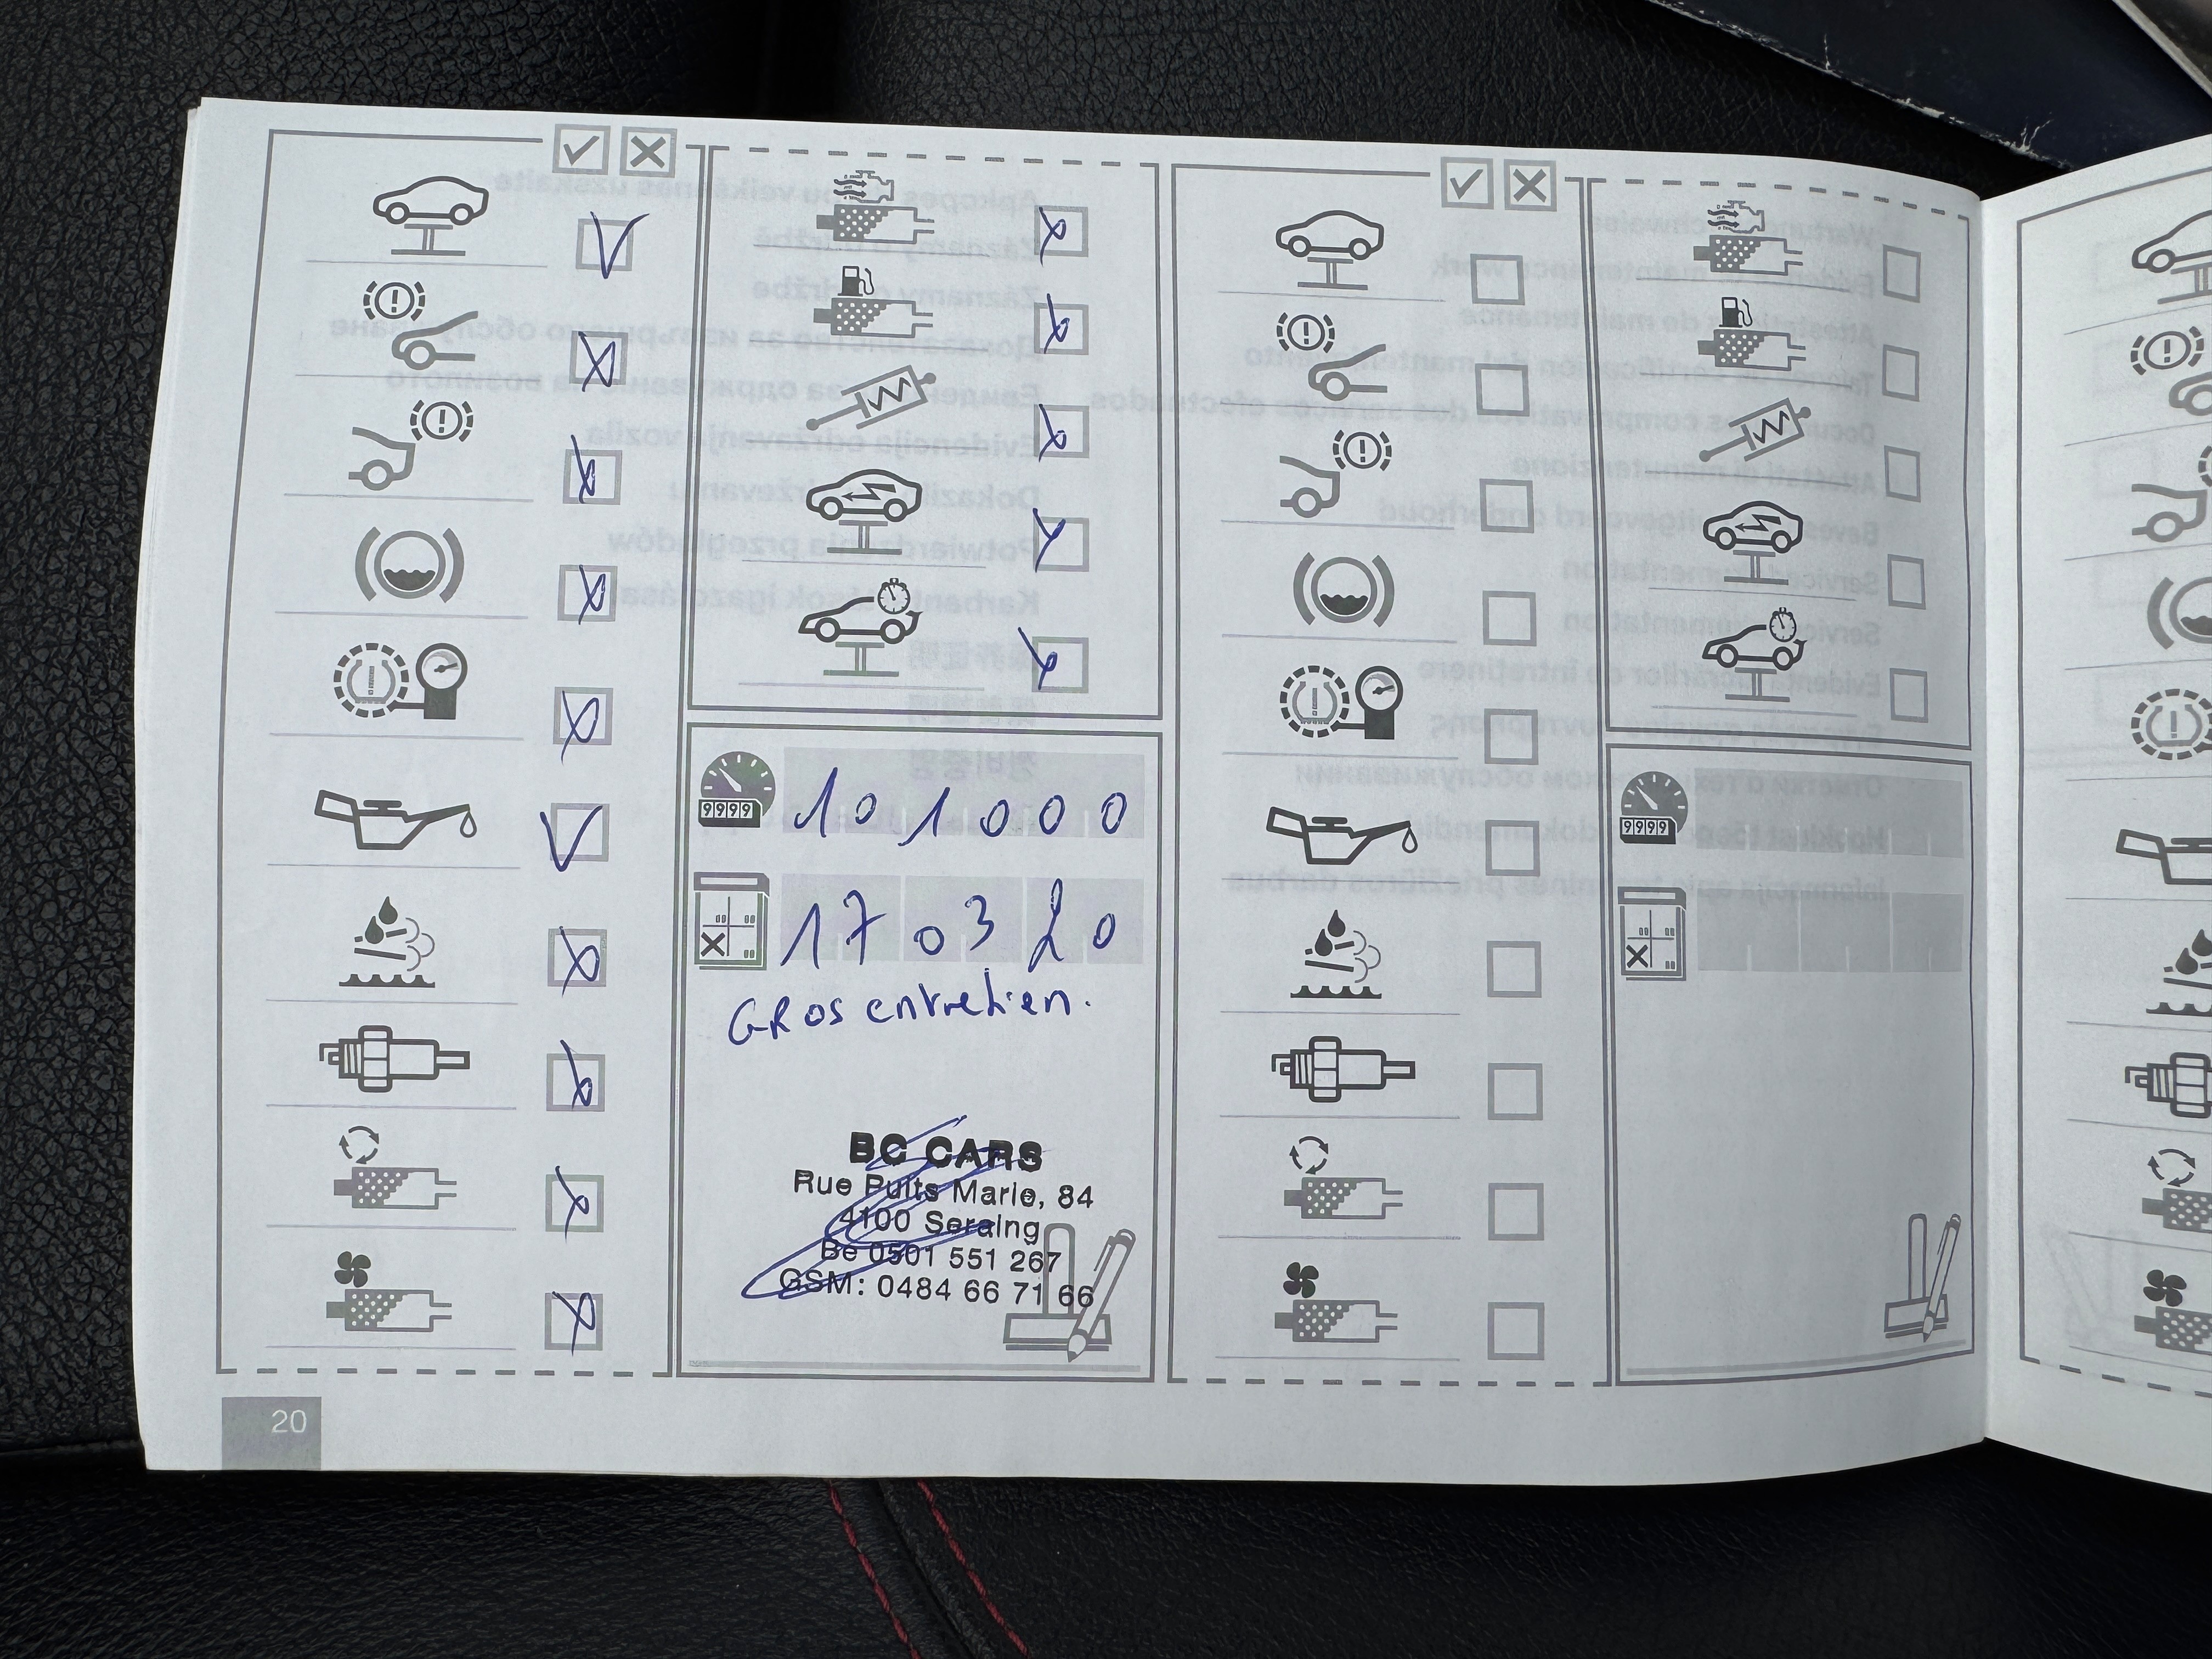 9999
101000
170320
GROS entretien.
BC CARS
Rue Puits Marie, 84
4100 Seraing
Be 0501 551 267
GSM: 0484 66 71 66
9999
20